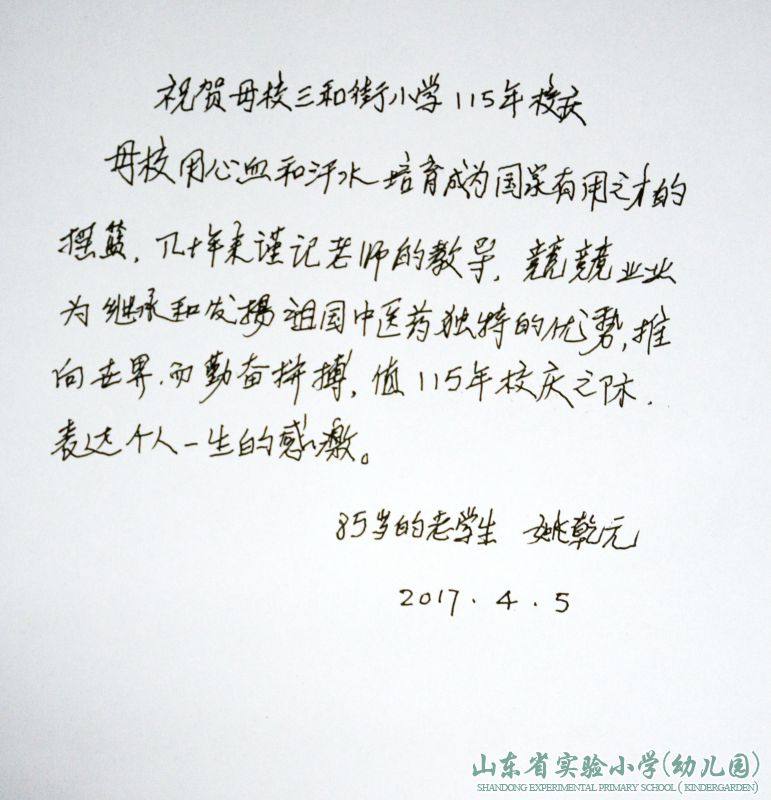 祝贺母校三和街小学115年校庆
母校用心血和汗水培育成为国家有用之才的
摇篮,几十年来谨记老师的教导,兢兢业业
为继承和发扬祖国中医药独特的优势,推
向世界.而勤奋拼搏,值115年校庆之际.
表达个人一生的感激。
85岁的老学生 姚乾元
2017.4.5
山东省实验小学(幼儿园)
SHANDONG EXPERIMENTAL PRIMARY SCHOOL ( KINDERGARDEN)